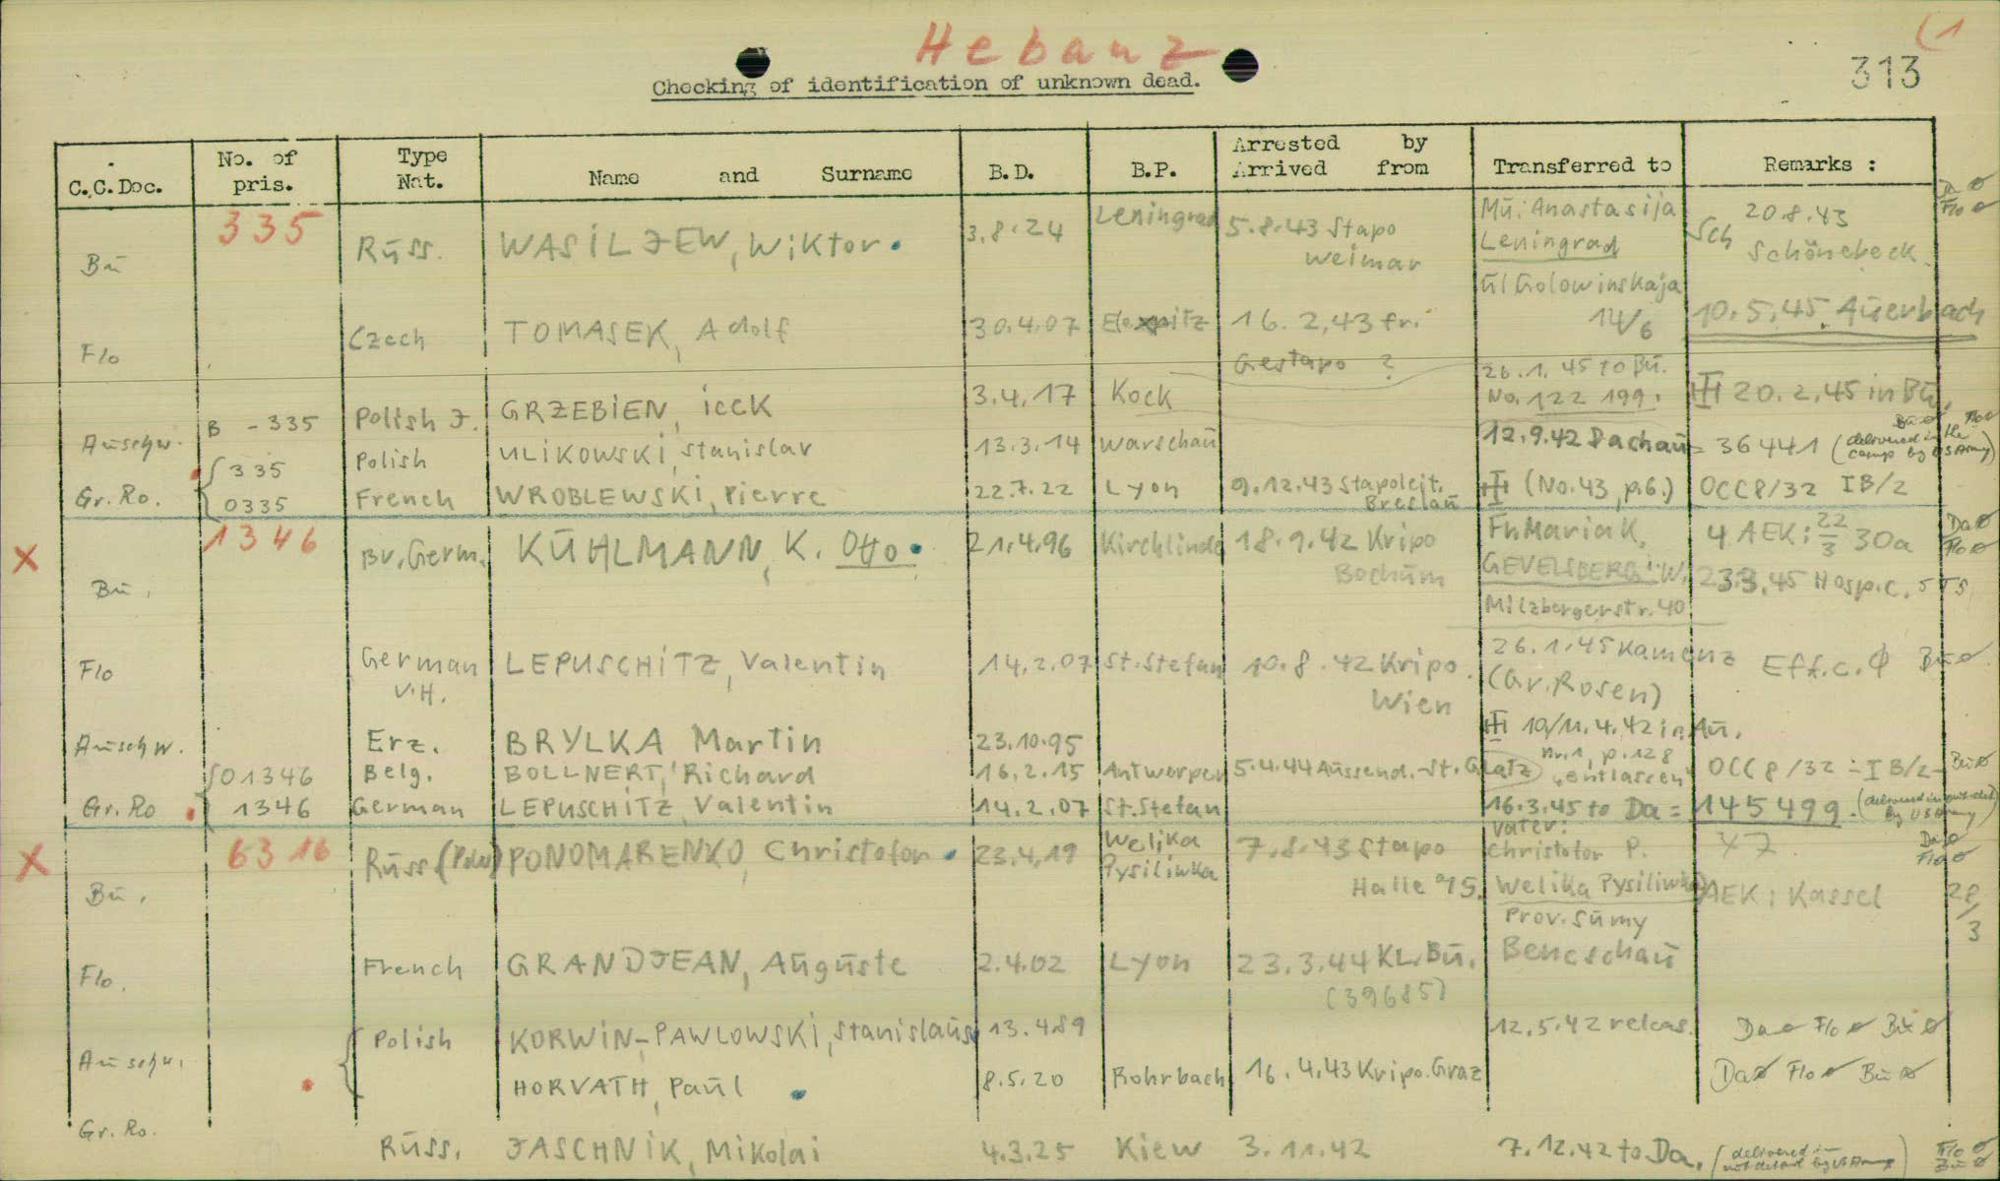 Hebanz
(1
313
Checking of identification of unknown dead.
C.C.Doc. No. of pris. Type Nat. Name and Surname B.D. B.P. Arrested by Arrived from Transferred to Remarks :
335
Bü Rüss. WASILJEW, Wiktor. 3.8.24 Leningrad 5.8.43 Stapo Weimar Mü: Anastasija Leningrad ül Golowinskaja 14/6 Sch 20.8.43 Schönebeck Da ø Flo ø
Flo Czech TOMASEK, Adolf 30.4.07 16.2.43 fr. Gestapo ? 10.5.45 Aüerbach
Aüschw. B - 335 Polish J. GRZEBIEN, icck 3.4.17 Kock 26.1.45 to Bü. No. 122 199. 20.2.45 in Bü.
Gr. Ro. 335 Polish ULIKOWSKI, Stanislav 13.3.14 Warschaü 12.9.42 Dachaü = 36441 (delivered in the camp by US Army) Bü ø Flo ø
0335 French WROBLEWSKI, Pierre 22.7.22 Lyon 9.12.43 Stapoleit. Breslaü (No. 43, p.6.) OCC8/32 IB/2
X 1346
Bü. BV. Germ. KÜHLMANN, K. Otto. 21.4.96 Kirchlinde 18.9.42 Kripo Bochüm Fr. Maria K. GEVELSBERG i.W. Milzbergerstr. 40 4 AEK: 22/3 30a 23.3.45 Hosp.c. 5TS Da ø Flo ø
Flo German V.H. LEPUSCHITZ, Valentin 14.2.07 St. Stefan 10.8.42 Kripo. Wien 26.1.45 Kamenz (Gr. Rosen) Eff.c. ø Bü ø
Aüschw. Erz. BRYLKA Martin 23.10.95 10/11.4.42 in Aü. Nr.1, p.128
01346 Belg. BOLLNERT, Richard 16.2.15 Antwerpen 5.4.44 Aüssend.-St. Glatz "entlassen" OCC8/32 - IB/2 - Bü ø
Gr. Ro 1346 German LEPUSCHITZ, Valentin 14.2.07 St. Stefan 16.3.45 to Da = 145499.
X 6316
Bü. Rüss (Pole) PONOMARENKO, Christofor. 23.4.19 Welika Pysiliwka 7.8.43 Stapo Halle Vater: Christofor P. Welika Pysiliwka Prov. Sümy 47 AEK: Kassel 28/3 Da ø Flo ø
Flo. French GRANDJEAN, Aügüste 2.4.02 Lyon 23.3.44 KL. Bü. (39685) Beneschaü
Aüschw. Polish KORWIN-PAWLOWSKI, Stanislaüs 13.4.89 12.5.42 releas. Da ø Flo ø Bü ø
HORVATH, Paül 8.5.20 Rohrbach 16.4.43 Kripo. Graz Da ø Flo ø Bü ø
Gr. Ro. Rüss. JASCHNIK, Mikolai 4.3.25 Kiew 3.11.42 7.12.42 to Da. Flo ø Bü ø